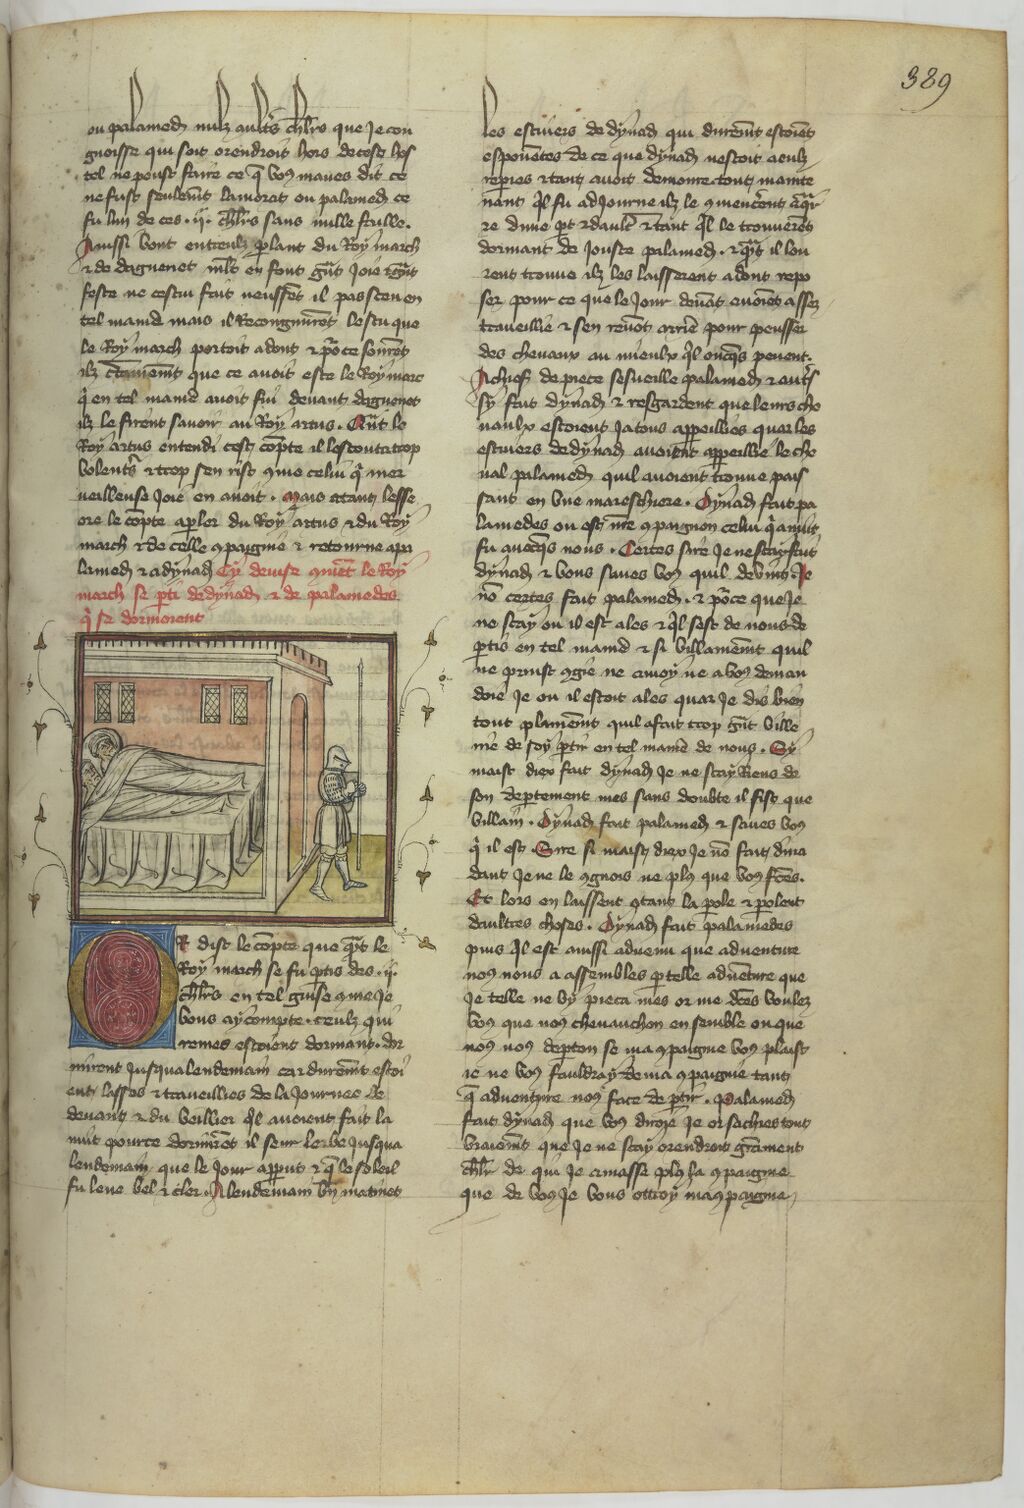 389
ou palamed nulz autrs chlrs que Je con
gnoisse qui soit orendroit hors de cest hos
tel ne peust faire ce q̃ voꝰ maues dit ce
ne fust seulemt lamorat ou palamed ce
fu lun de ces .ij. chlrs sans nulle faille.
Ainssi vont entreulz plant du Roy march
& de daguenet mlt en font gñt Joie & gñt
feste ne cestui fait neussẽt il pas sceu en
tel maniẽ mais il Recongnurẽt lescu que
le Roy march portoit adont & põce sõrẽt
ilz c̃tainemt que ce auoit este le Roy marc
q̃ en tel maniẽ auoit fui deuant daguenet
ilz le firent sauoir au Roy artus. Qñt le
Roy artus entendi cest cõpte il lescouta trop
volentrs & trop sen rist ꝯme celui q̃ mer
ueilleuse Joie en auoit. Mais atant lesse
ore le cõpte a pler du Roy artus & du Roy
march & de celle ꝯpaignie & retourne a pa
lamed & a dynad Cy deuise ꝯmẽt le Roy
march se pti de dynad & de palamedes
q̃ se dormoient
OR dist le cõpte que qñt le
Roy march se fu ptis des .ij.
chlrs en tel guise ꝯme Je
vous ay compte. ceulz qui
remes estoient dormant. dor
mirent Jusqua lendemain car duremt estoi
ent lasses & traueillies de la Journee de
deuant & du veillier ql auoient fait la
nuit pource dormirẽt il seur lerbe Jusqua
lendemain que le Jour apparut & q̃ le soleil
fu leue bel & cler. A lendemain bñ matinet
les escuiers de dynad qui duremt estoiẽt
espouẽtes de ce que dynad nestoit a eulz
repries & tant auoit demoure. tout mainte
nant ql fu adJourne ilz le ꝯmencẽrent a qr̃
re dune pt & daultr & tant ql le trouuerẽt
dormant de Jouste palamed. & qñt il lou
rent trouue ilz les laisserent adont repo
ser pour ce que le Jour deuãt euoiẽt assez
traueillie & sen reuõt arriẽ pour pensser
des cheuaux au mieulx ql oncqs peuent.
A chief de piece sesueille palamed & autrs
sy fait dynad & resgardent que leurs che
uaulx estoient Ja tous appeillies quar les
escuiers de dynad auoient appeillie le che
ual palamed quil auoient trouue pais
sant en vne mareschiere. Dynad fait pa
lamedes ou est nrẽ ꝯpaignon celui q̃ anuit
fu auecqs nous. Certes sire Je ne scay fait
dynad & vous saues voꝰ quil deuint. Je
nõ certes fait palamed. & põce que Je
ne scay ou il est ales & ql sest de nous de
ptis en tel maniẽ & si villainemt quil
ne prinst ꝯgie ne a moy ne a voꝰ deman
doie Je ou il estoit ales quar Je dis bien
tout plainemt quil a fait trop gñt ville
nie de soy ptir en tel maniẽ de nous. Sy
maist diex fait dynad Je ne scay Riens de
son deptement mes sans doubte il fist que
villain. Dynad fait palamed & saues voꝰ
q̃ il est. Sire si maist diex Je nõ fait dina
dant Je ne le ꝯgnois ne plꝰ que voꝰ fctes.
Et lors en laissent atant la pole & polent
daultres choses. Dynad fait palamedes
puis ql est aussi aduenu que aduenture
noꝰ nous a assembles p telle aduẽture que
Je telle ne vy pieca mes or me dctes voulez
voꝰ que noꝰ cheuauchon ensemble ou que
noꝰ noꝰ depton se ma ꝯpaignie voꝰ plaist
ie ne voꝰ fauldray de ma ꝯpaignie tant
q̃ aduenture noꝰ face deptir. Palamed
fait dynad que voꝰ diroie Je or sachies tout
vraiemt que Je ne scay orendroit grãment
chlr de qui Je amasse plꝰ la ꝯpaignie
que de voꝰ Je vous ottroy ma ꝯpaignie